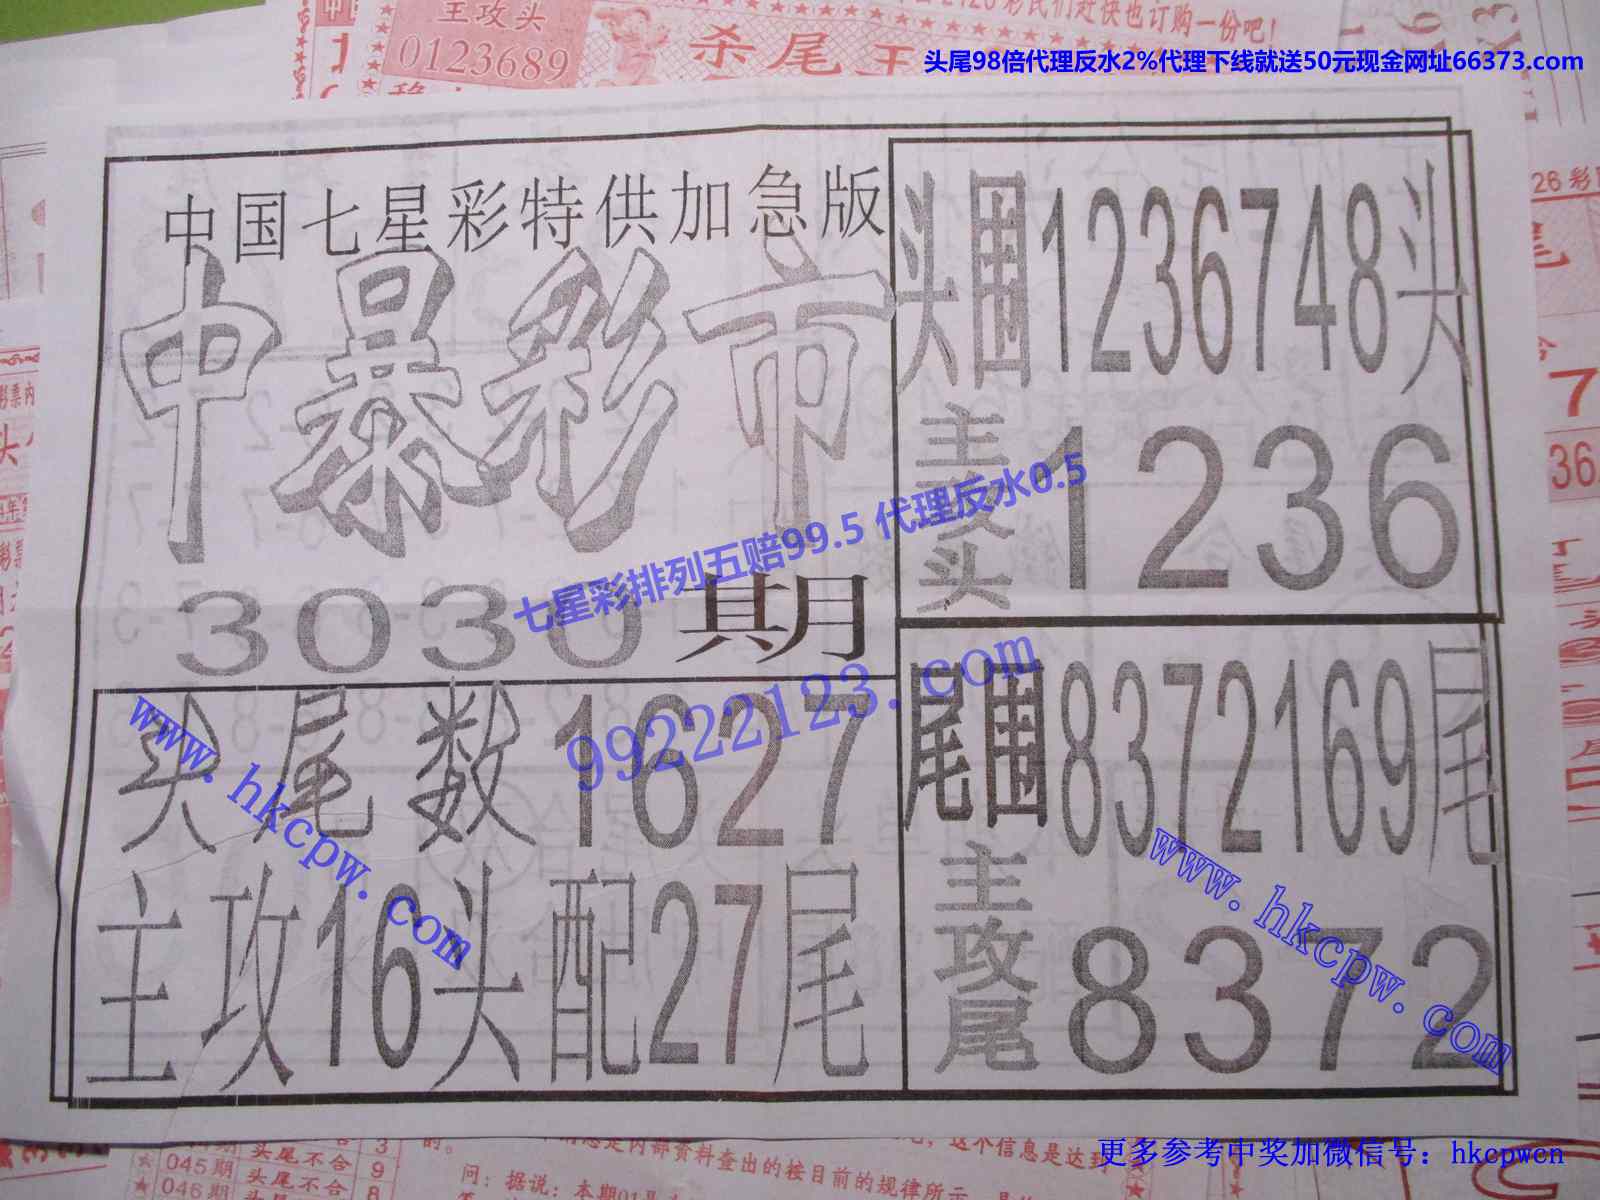 王攻头
0123689
杀尾王
彩民们赶快也订购一份吧!
头尾98倍代理反水2%代理下线就送50元现金网址66373.com
中国七星彩特供加急版
中暴彩市
3030期
头围1236748头
主攻头1236
七星彩排列五赔99.5 代理反水0.5
99222123.com
头尾数1627
主攻16头配27尾
尾围8372169尾
主攻尾8372
www.hkcpw.com
www.hkcpw.com
26彩
7
36
045期 头尾不合 9
046期 头尾不合 8
内部资料查出的按目前的规律所示
问：据说：本期01
这个信息是达到
更多参考中奖加微信号：hkcpwcn